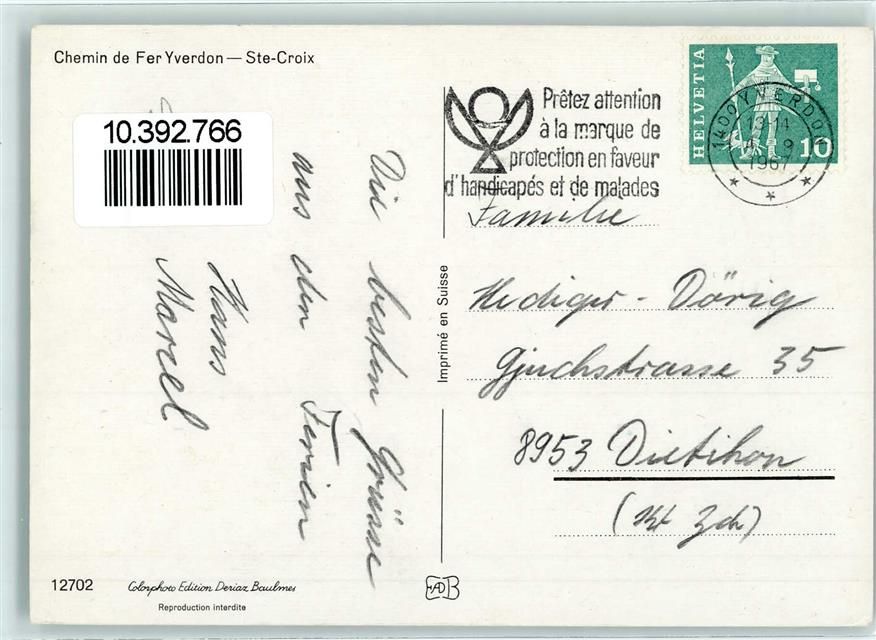 Chemin de Fer Yverdon — Ste-Croix
10.392.766
Die besten Grüsse
aus den Ferien
Hans
Marcel
Imprimé en Suisse
Prêtez attention
à la marque de
protection en faveur
d'handicapés et de malades
HELVETIA
10
1400 YVERDON
13-14
9
1967
Familie
Hediger - Dörig
Gjuchstrasse 35
8953 Dietikon
(Kt Zch)
12702
Colorphoto Edition Deriaz Baulmes
Reproduction interdite